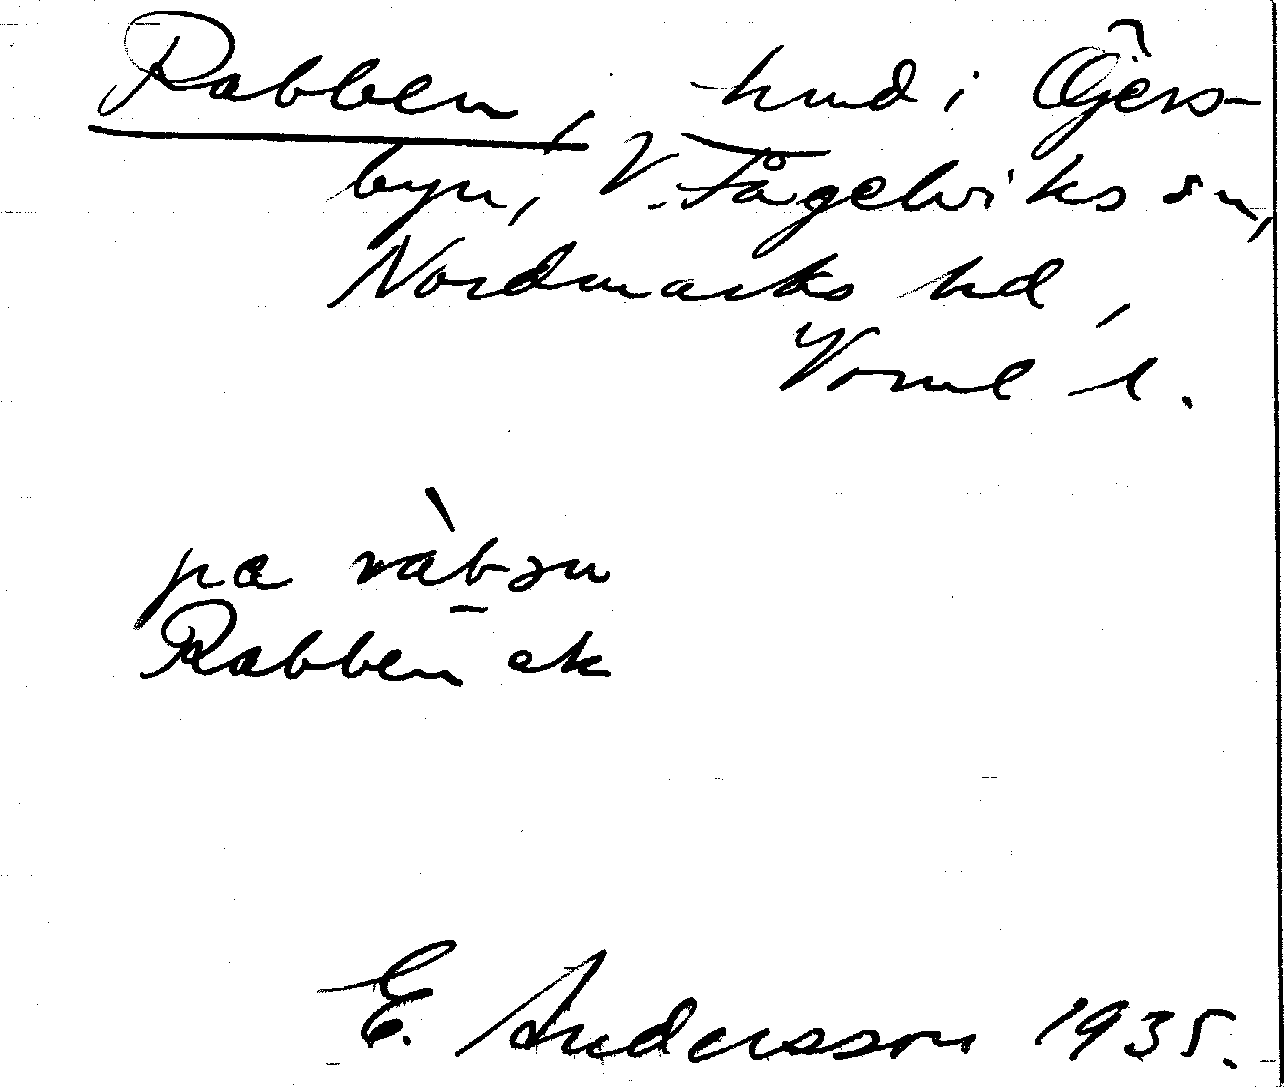 Rabben, hmd i Öjers-
byn, V. Fågelviks sn,
Nordmarks hd,
Vrml l.
pa ràb̠ən
Rabben ek
E. Andersson 1935.